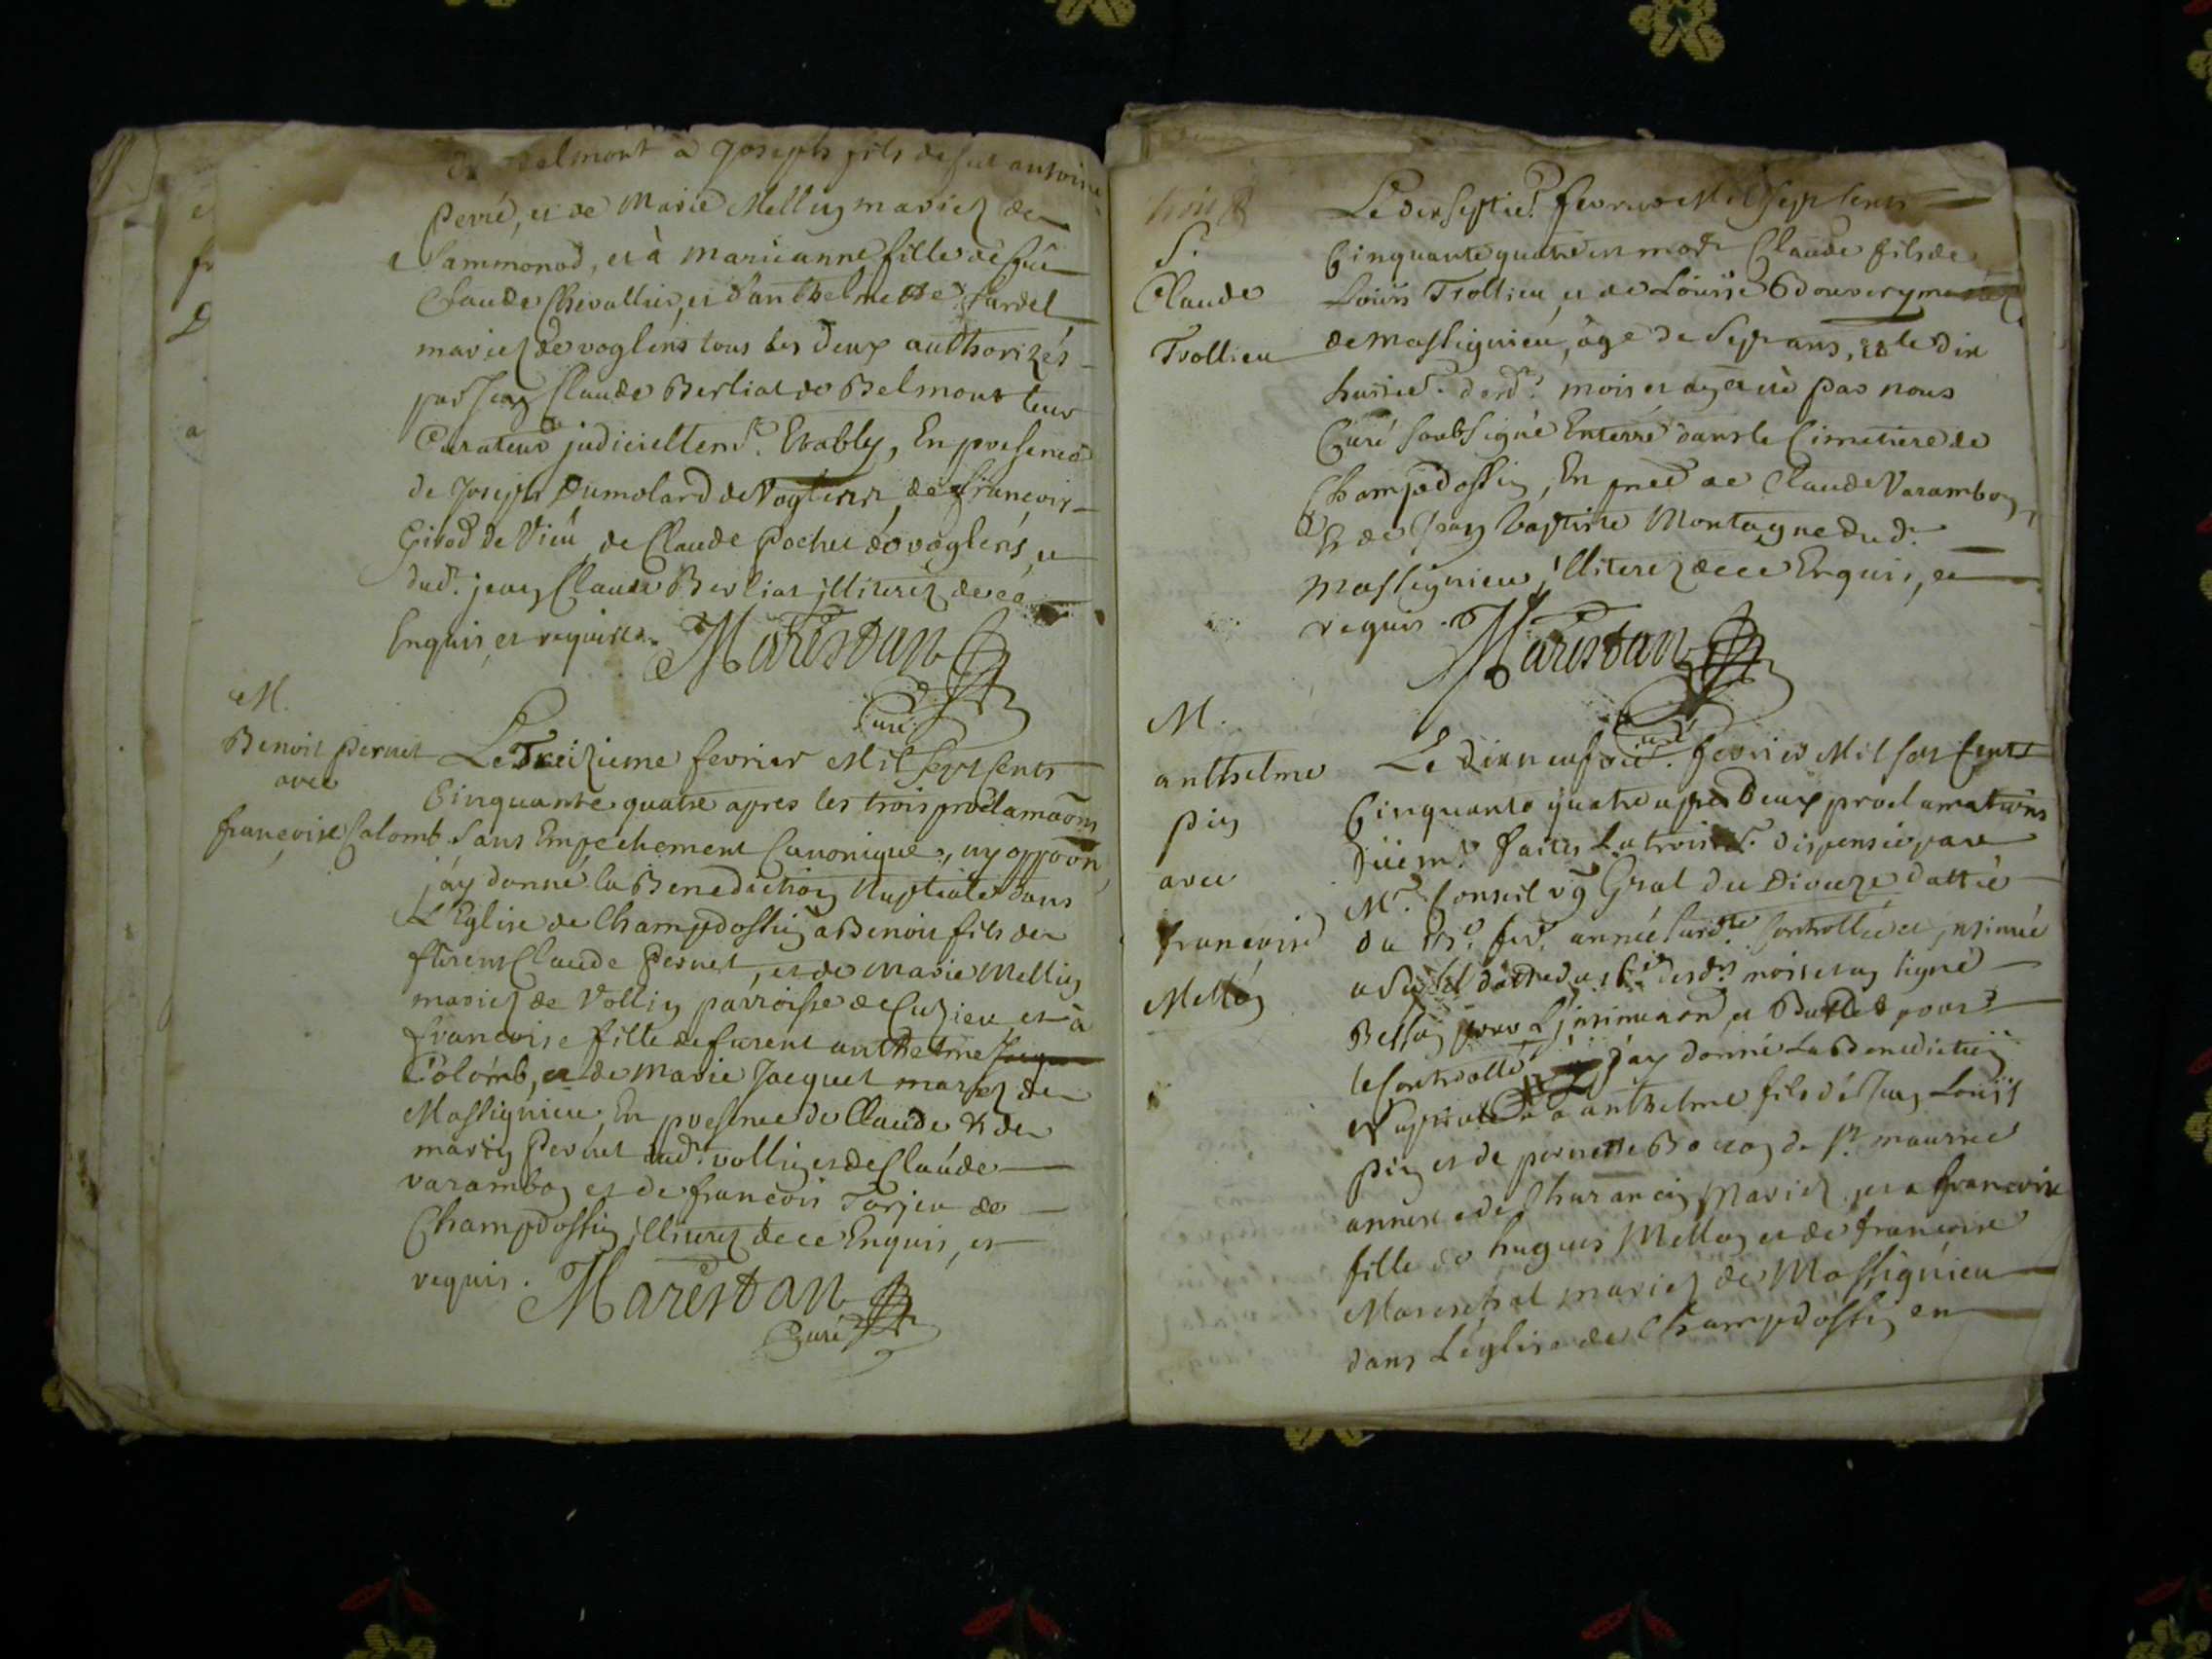 De Belmont a Joseph fils de feu antoine
Perré, et de Marie Melluy mariez de
Sammonod, et à marieanne fille de feu
Claude Chevallier, et d'anthelmette Gardel
mariez de voglens tous les deux authorizés
par Jean Claude Berliat de Belmont leur
Curateur judiciellemt. Etably, En presence
de Joseph Dumolard de Voglens, de françois
Girod de Vieu, de Claude Pochet de voglens, et
dud. jean Claude Berliat illiterez de ce
Enquis, et requis.
Marestan
Curé
M.
Benoit pernet
avec
françoise Calomb
Le Treizieme fevrier Mil sept cents
Cinquante quatre apres les trois proclamaons
Sans Empechement Canonique, ny oppoon,
j'ay donné la Benediction Nuptiale dans
L'Eglise de Champdossin a Benoit fils de
Claude Pernet, et de Marie Melliey
mariez de Vollin parroisse de Cuzieu et à
francoise fille de furent anthelme
Colomb, et de marie Jacquet mariez de
Massignieu, En presence de Claude & de
marin Pernet dud. vollin et de Claude
varambon et de francois Torjeu de
Champdossin illiterez de ce Enquis, et
requis.
Marestan
Curé
S.
Claude
Trollieu
Le dix septie. fevrier Mil Sept Cents
Cinquante quatre est mort Claude fils de
Louis Trollieu et de Louise Bouvery mariez
de massignieu, âge de Sept ans, et le dix
huitie. dud. mois et an a été par nous
Curé Soubsigné Enterré dans le Cimetiere de
Champdossin, En pnce de Claude Varambon,
& de Jean baptiste Montagne dud.
Massignieu, illiterez de ce Enquis, et
requis.
Marestan
Curé
M.
anthelme
pin
avec
francoise
Mellon
Le dixneufvie. fevrier Mil sept Cents
Cinquante quatre apres Deux proclamations
Düemt. faites La troise. dispensée par
Mr. Conseil vg Gnal du Dioceze dattée
du fevr. année susdte Controllée et jnsinuée
mois et an signé
Bellay pour L'jnsinuaon et pour
le Controlle j'ay donné La Benediction
Nuptiale a anthelme fils de Jean Louis
pin et de pernette Boccon de St. maurice
annexe de Charancin Mariez, et a francoise
fille de hugues Mellon et de francoise
Mareschal mariez de Massignieu
dans L'église de Champdossin en